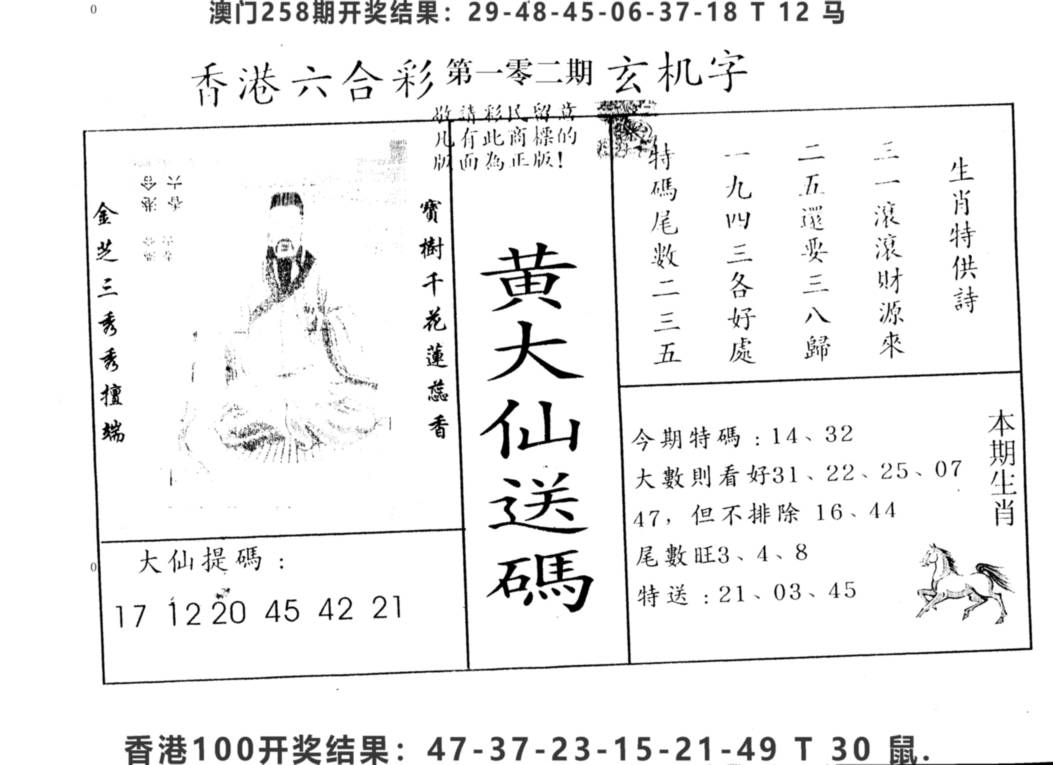 澳门258期开奖结果：29-48-45-06-37-18 T 12 马
香港六合彩 第一零二期 玄机字
敬請彩民留意
凡有此商標的
版面為正版！
生肖特供詩
三一滾滾財源來
二五還要三八歸
一九四三各好處
特碼尾數二三五
寶樹千花蓮蕊香
金芝三秀秀擅端
黄大仙送碼
本期生肖
今期特碼：14、32
大數則看好31、22、25、07
47，但不排除 16、44
尾數旺3、4、8
特送：21、03、45
大仙提碼：
17 12 20 45 42 21
香港100开奖结果：47-37-23-15-21-49 T 30 鼠.